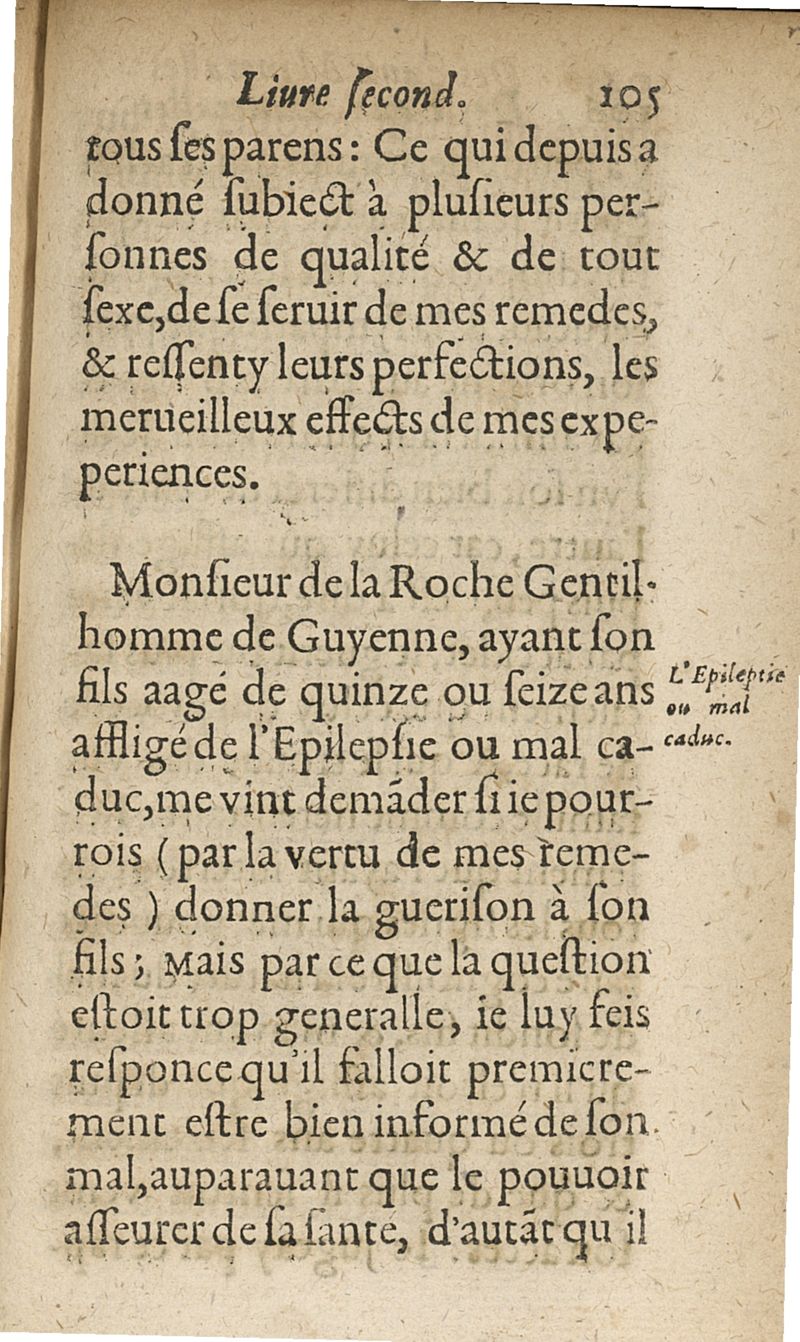 Liure ſecond. 105
tous ſes parens: Ce qui depuis a
donné ſubiect à pluſieurs per-
ſonnes de qualité & de tout
ſexe, de ſe ſeruir de mes remedes,
& reſſenty leurs perfections, les
merueilleux effects de mes expe-
periences.
Monſieur de la Roche Gentil-
homme de Guyenne, ayant ſon
fils aagé de quinze ou ſeize ans
affligé de l'Epilepſie ou mal ca-
duc, me vint demãder ſi ie pour-
rois (par la vertu de mes reme-
des) donner la gueriſon à ſon
fils; Mais par ce que la queſtion
eſtoit trop generalle, ie luy feis
reſponce qu'il falloit premiere-
ment eſtre bien informé de ſon
mal, auparauant que le pouuoir
aſſeurer de ſa ſante, d'autãt qu'il
L'Epileptie
ou mal
caduc.